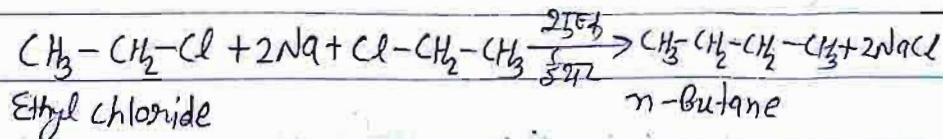 CH₃-CH₂-Cl + 2Na + Cl-CH₂-CH₃ ⟶ CH₃-CH₂-CH₂-CH₃ + 2NaCl
Ethyl chloride n-Butane